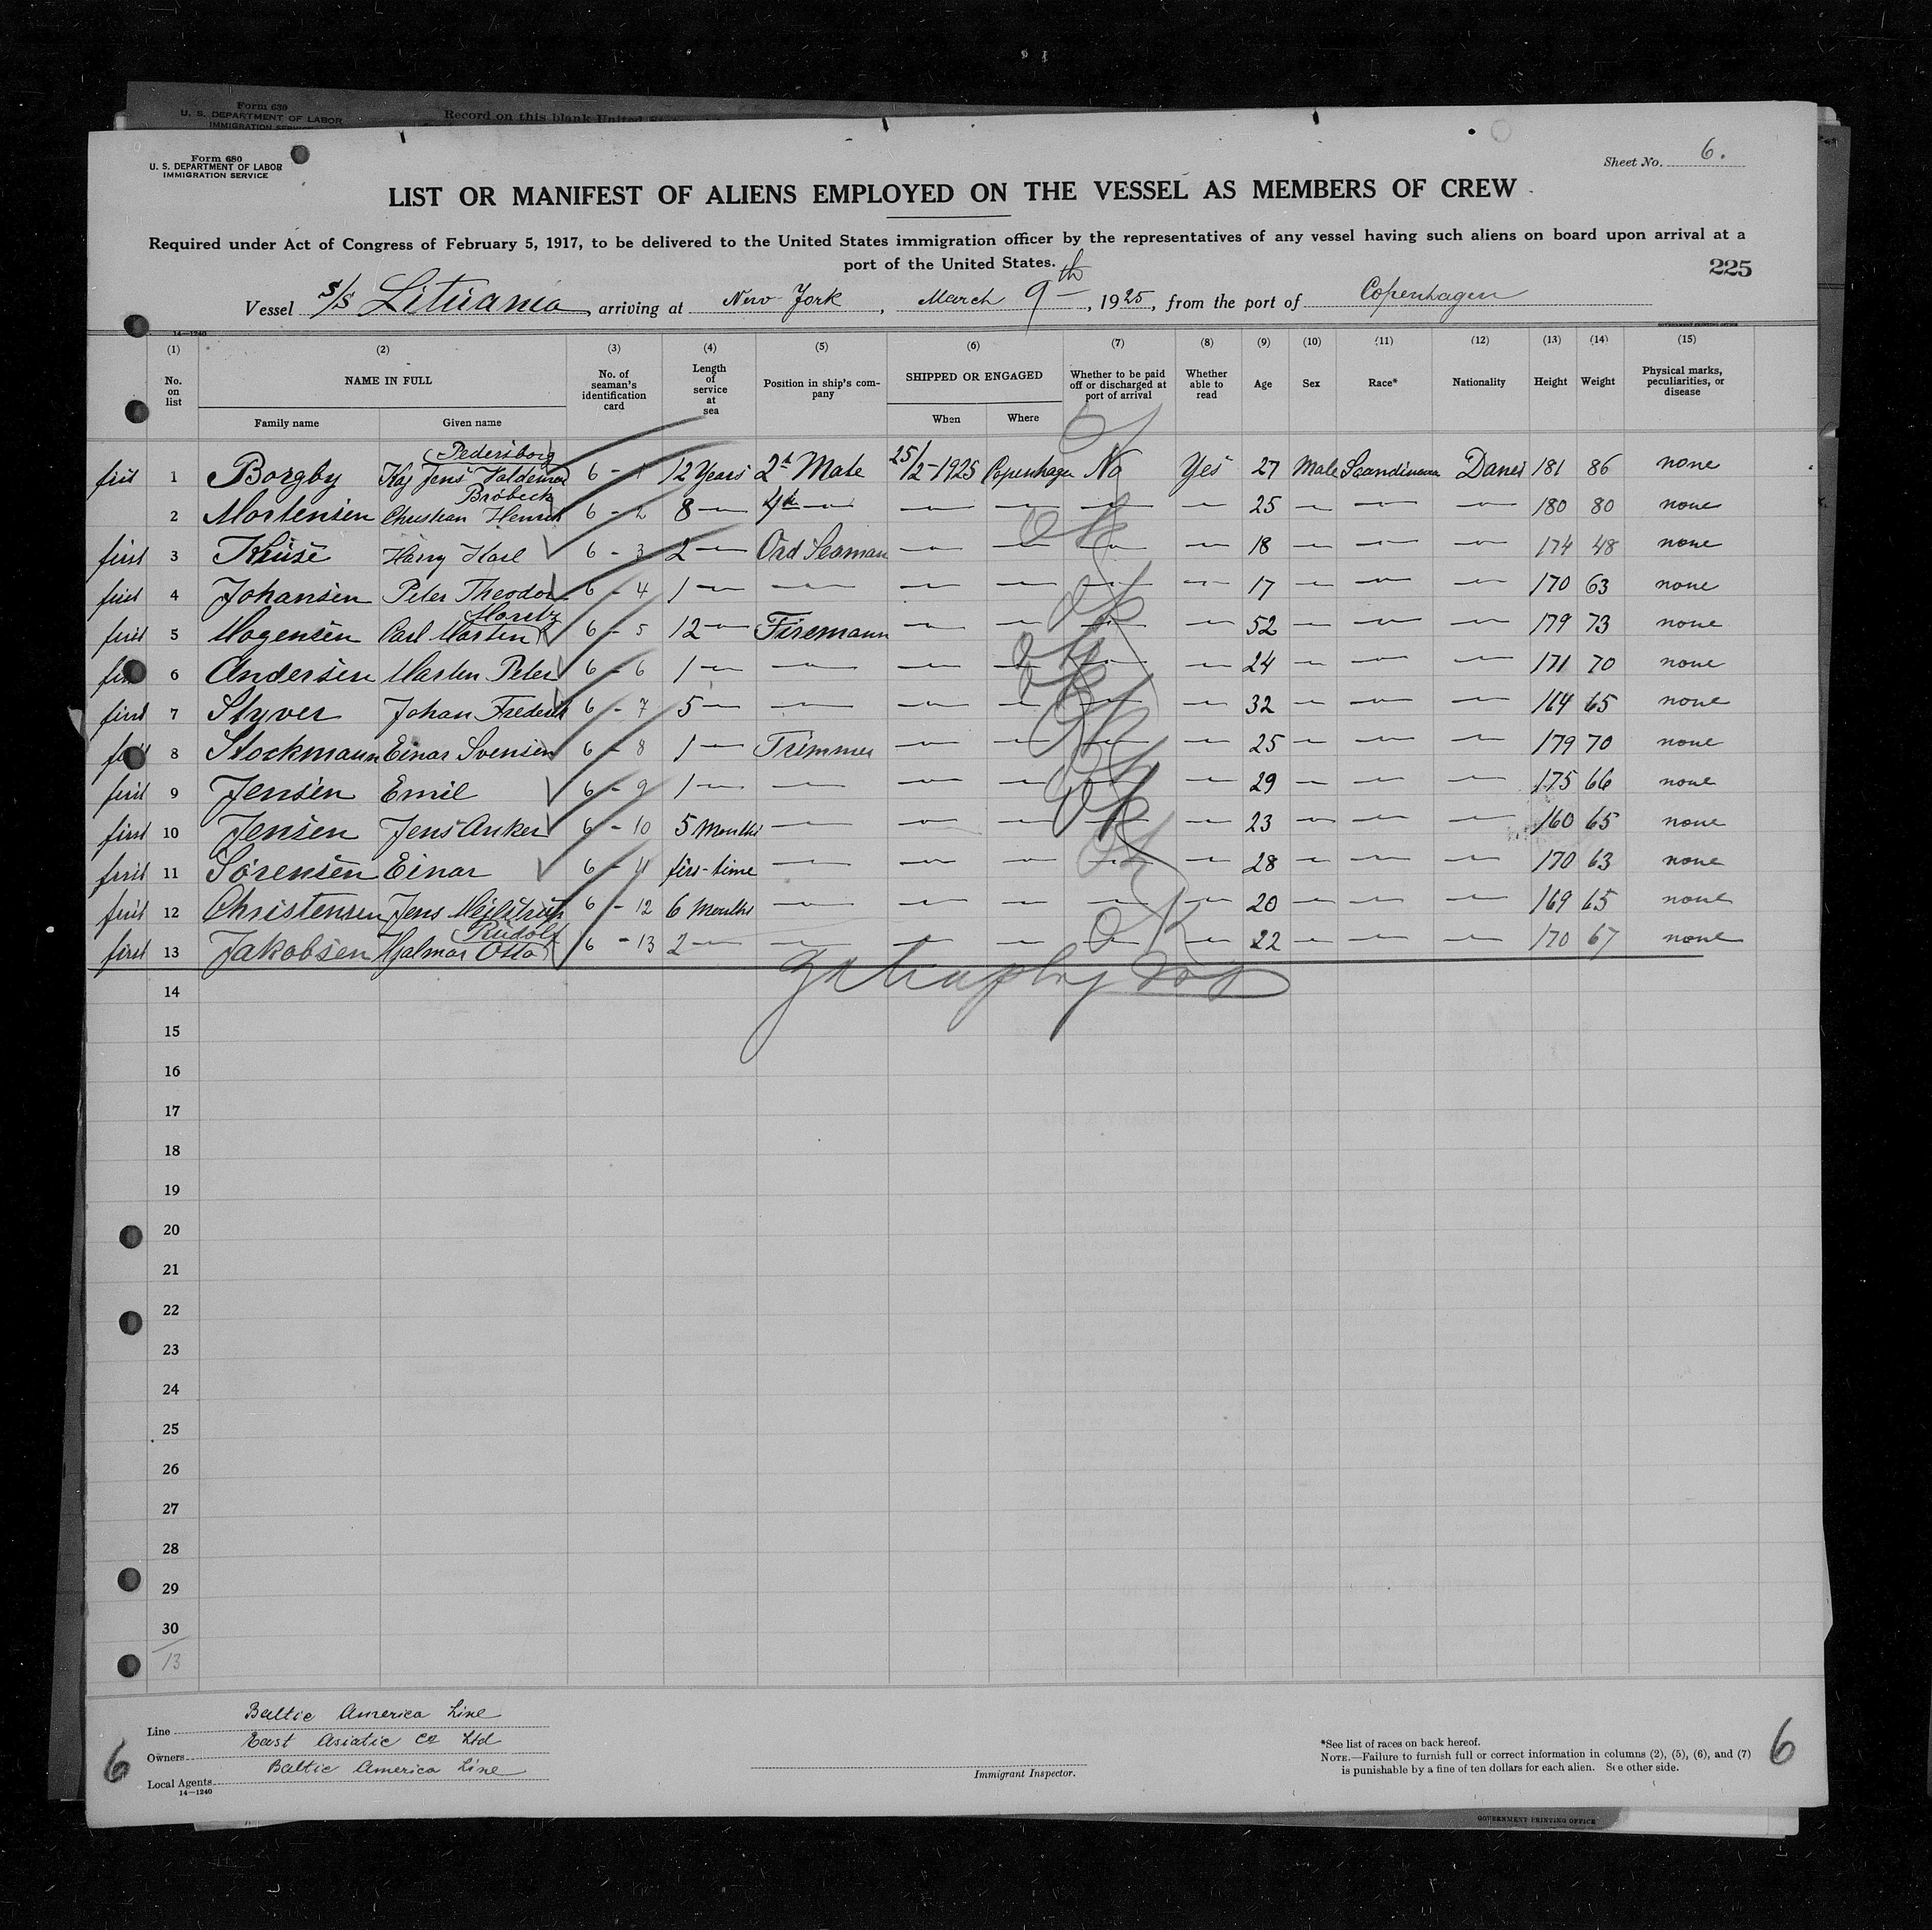 Form 630
U. S. DEPARTMENT OF LABOR
IMMIGRATION SERVICE
Record on this blank United
Form 680
U. S. DEPARTMENT OF LABOR
IMMIGRATION SERVICE
Sheet No. 6.
LIST OR MANIFEST OF ALIENS EMPLOYED ON THE VESSEL AS MEMBERS OF CREW
Required under Act of Congress of February 5, 1917, to be delivered to the United States immigration officer by the representatives of any vessel having such aliens on board upon arrival at a
port of the United States.
225
Vessel S/S Lituania, arriving at New York, March 9th, 1925, from the port of Copenhagen
14—1240
GOVERNMENT PRINTING OFFICE
(1) (2) (3) (4) (5) (6) (7) (8) (9) (10) (11) (12) (13) (14) (15)
No. on list NAME IN FULL No. of seaman's identification card Length of service at sea Position in ship's company SHIPPED OR ENGAGED Whether to be paid off or discharged at port of arrival Whether able to read Age Sex Race* Nationality Height Weight Physical marks, peculiarities, or disease
Family name Given name When Where
first 1 Borgby Kaj Jens Valdemar (Pedersborg) 6 - 1 12 Years 2d Mate 25/2-1925 Copenhagen No Yes 27 Male Scandinavia Danes 181 86 none
2 Mortensen Christian Henrik Brobeck 6 - 2 8 — 4th — — — — — 25 — — — 180 80 none
first 3 Kruse Harry Karl 6 - 3 2 — Ord Seaman — — — — 18 — — — 174 48 none
first 4 Johansen Peter Theodor 6 - 4 1 — — — — — — 17 — — — 170 63 none
first 5 Mogensen Carl Martin Moretz 6 - 5 12 — Firemann — — — — 52 — — — 179 73 none
first 6 Andersen Marten Peter 6 - 6 1 — — — — — — 24 — — — 171 70 none
first 7 Styver Johan Frederik 6 - 7 5 — — — — — — 32 — — — 164 65 none
first 8 Stockmann Einar Svensen 6 - 8 1 — Trimmer — — — — 25 — — — 179 70 none
first 9 Jensen Emil 6 - 9 1 — — — — — — 29 — — — 175 66 none
first 10 Jensen Jens Anker 6 - 10 5 Months — — — — — 23 — — — 160 65 none
first 11 Sorensen Einar 6 - 11 firs-time — — — — — 28 — — — 170 63 none
first 12 Christensen Jens 6 - 12 6 Months — — — — — 20 — — — 169 65 none
first 13 Jakobsen Hjalmar Otto Rudolf 6 - 13 2 — — — — — — 22 — — — 170 67 none
14
15
16
17
18
19
20
21
22
23
24
25
26
27
28
29
30
13
Line Baltic America Line
Owners East Asiatic Co Ltd
Local Agents Baltic America Line
14—1240
6
Immigrant Inspector.
*See list of races on back hereof.
NOTE.—Failure to furnish full or correct information in columns (2), (5), (6), and (7)
is punishable by a fine of ten dollars for each alien. See other side.
6
GOVERNMENT PRINTING OFFICE